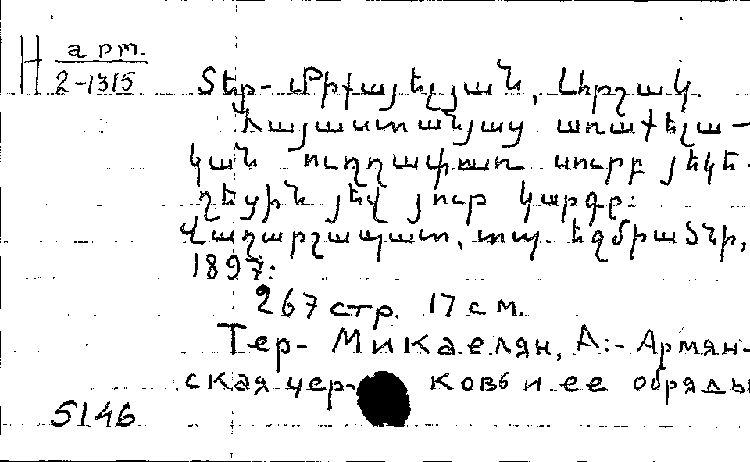 H арт.
2-1315
Տեր-Միքայելյան, Արշակ
Հայաստանյայց առաքելա-
կան ուղղափառ սուրբ յեկե-
ղեցին յեվ յուր կարգը:
Վաղարշապատ, տպ. Եջմիածնի,
1897:
267 стр. 17 см.
Тер-Микаелян, А:- Армян-
ская цер- ковь и ее обряды
5146